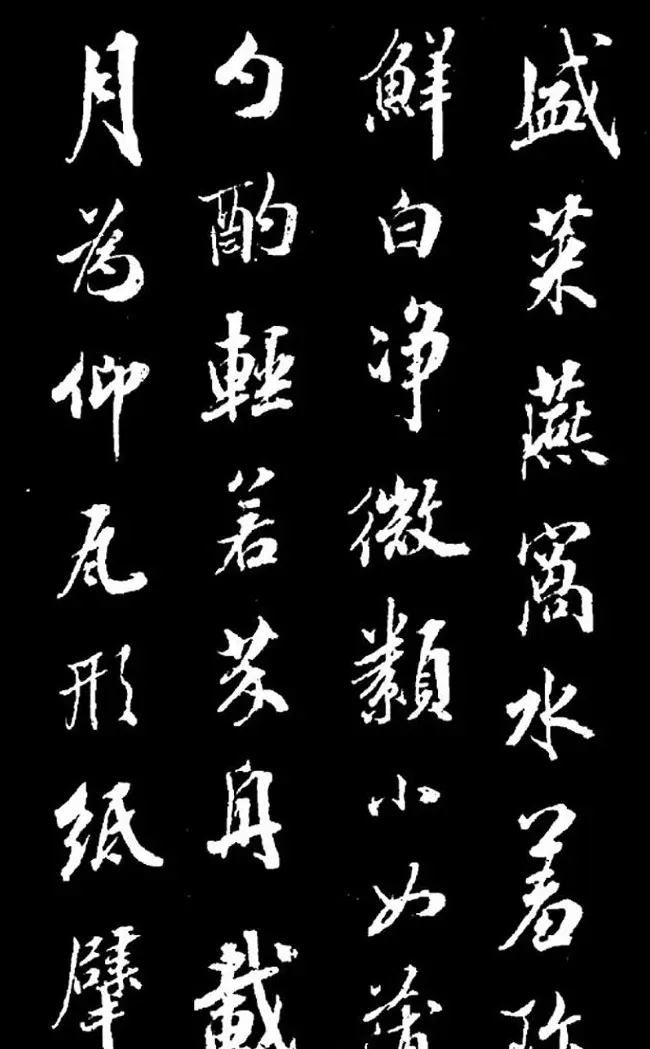 盛菜燕窩水羞珍
鮮白净微類小如蒲
勺酌輕若芥舟載
月為仰瓦形紙擘